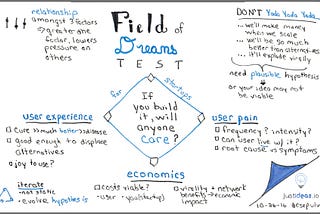 relationship
amongst 3 factors
→ greater one
factor, lowers
pressure on
others
Field of
Dreams
TEST
DON'T Yada Yada Yada...
...we'll make money
when we scale
...we'll be so much
better than alternatives
...it'll explode virally
need plausible hypothesis
or your idea may not
be viable
for
startups
If
you build
it, will
anyone
Care?
user experience
cure >> much better >>
good enough to displace
alternatives
joy to use?
user pain
frequency? intensity?
can user live w/ it?
root cause vs symptoms
economics
costs viable?
virality + network
benefits → economic
impact
iterate
-not static
-evolve hypothesis
justideas.io
10-26-16